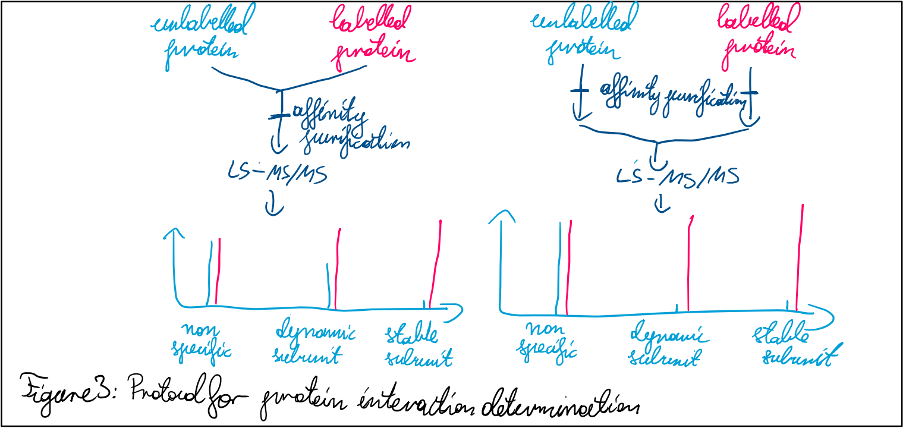 unlabelled
protein
labelled
protein
affinity
purification
LS-MS/MS
non
specific
dynamic
subunit
stable
subunit
unlabelled
protein
labelled
protein
affinity purification
LS-MS/MS
non
specific
dynamic
subunit
stable
subunit
Figure 3: Protocol for protein interaction determination